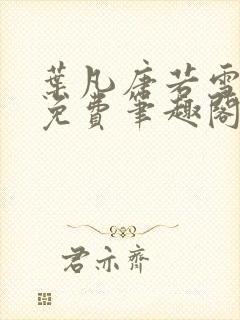 葉凡唐若雪
免費筆趣閣
君亦齊